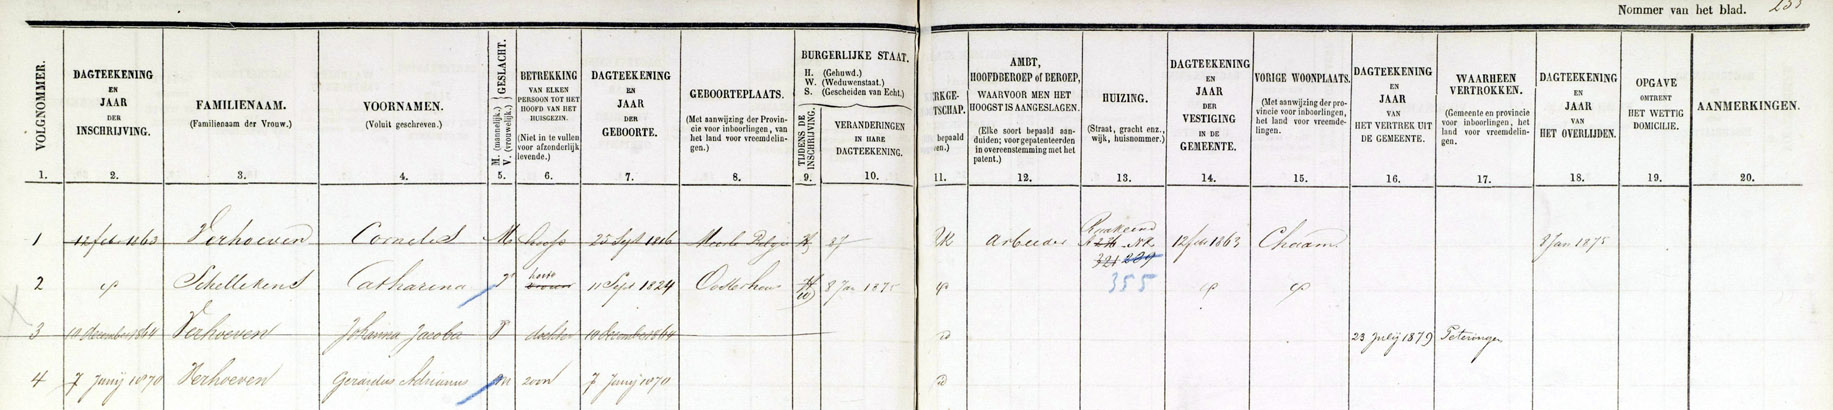 Nommer van het blad.
VOLGNOMMER.
1.
DAGTEEKENING
EN
JAAR
DER
INSCHRIJVING.
2.
FAMILIENAAM.
(Familienaam der Vrouw.)
3.
VOORNAMEN.
(Voluit geschreven.)
4.
GESLACHT.
M. (mannelijk.)
V. (vrouwelijk.)
5.
BETREKKING
VAN ELKEN
PERSOON TOT HET
HOOFD VAN HET
HUISGEZIN.
(Niet in te vullen
voor afzonderlijk
levende.)
6.
DAGTEEKENING
EN
JAAR
DER
GEBOORTE.
7.
GEBOORTEPLAATS.
(Met aanwijzing der Provin-
cie voor inboorlingen, van
het land voor vreemdelin-
gen.)
8.
BURGERLIJKE STAAT.
H. (Gehuwd.)
W. (Weduwenstaat.)
S. (Gescheiden van Echt.)
TIJDENS DE
INSCHRIJVING.
9.
VERANDERINGEN
IN HARE
DAGTEEKENING.
10.
ERKGE-
TSCHAP.
bepaald
en.)
11.
AMBT,
HOOFDBEROEP of BEROEP,
WAARVOOR MEN HET
HOOGST IS AANGESLAGEN.
(Elke soort bepaald aan-
duiden; voor gepatenteerden
in overeenstemming met het
patent.)
12.
HUIZING.
(Straat, gracht enz.,
wijk, huisnommer.)
13.
DAGTEEKENING
EN
JAAR
DER
VESTIGING
IN DE
GEMEENTE.
14.
VORIGE WOONPLAATS.
(Met aanwijzing der pro-
vincie voor inboorlingen,
het land voor vreemde-
lingen.
15.
DAGTEEKENING
EN
JAAR
VAN
HET VERTREK UIT
DE GEMEENTE.
16.
WAARHEEN
VERTROKKEN.
(Gemeente en provincie
voor inboorlingen, het
land voor vreemdelin-
gen.
17.
DAGTEEKENING
EN
JAAR
VAN
HET OVERLIJDEN.
18.
OPGAVE
OMTRENT
HET WETTIG
DOMICILIE.
19.
AANMERKINGEN.
20.
1 12 feb 1863 Verhoeven Cornelis M hoofd 25 Sept 1816 Meerle Belgie H RK Arbeider 12 feb 1863 Chaam 8 Jan 1875
321 209
2 Schellekens Catharina V hoofd 11 Sept 1824 Oosterhout H 8 Jan 1875 355
3 10 december 1864 Verhoeven Johanna Jacoba V dochter 10 december 1864 id 23 Julij 1879 Peteringen
4 7 Junij 1870 Verhoeven Gerardus Adrianus M zoon 7 Junij 1870 id